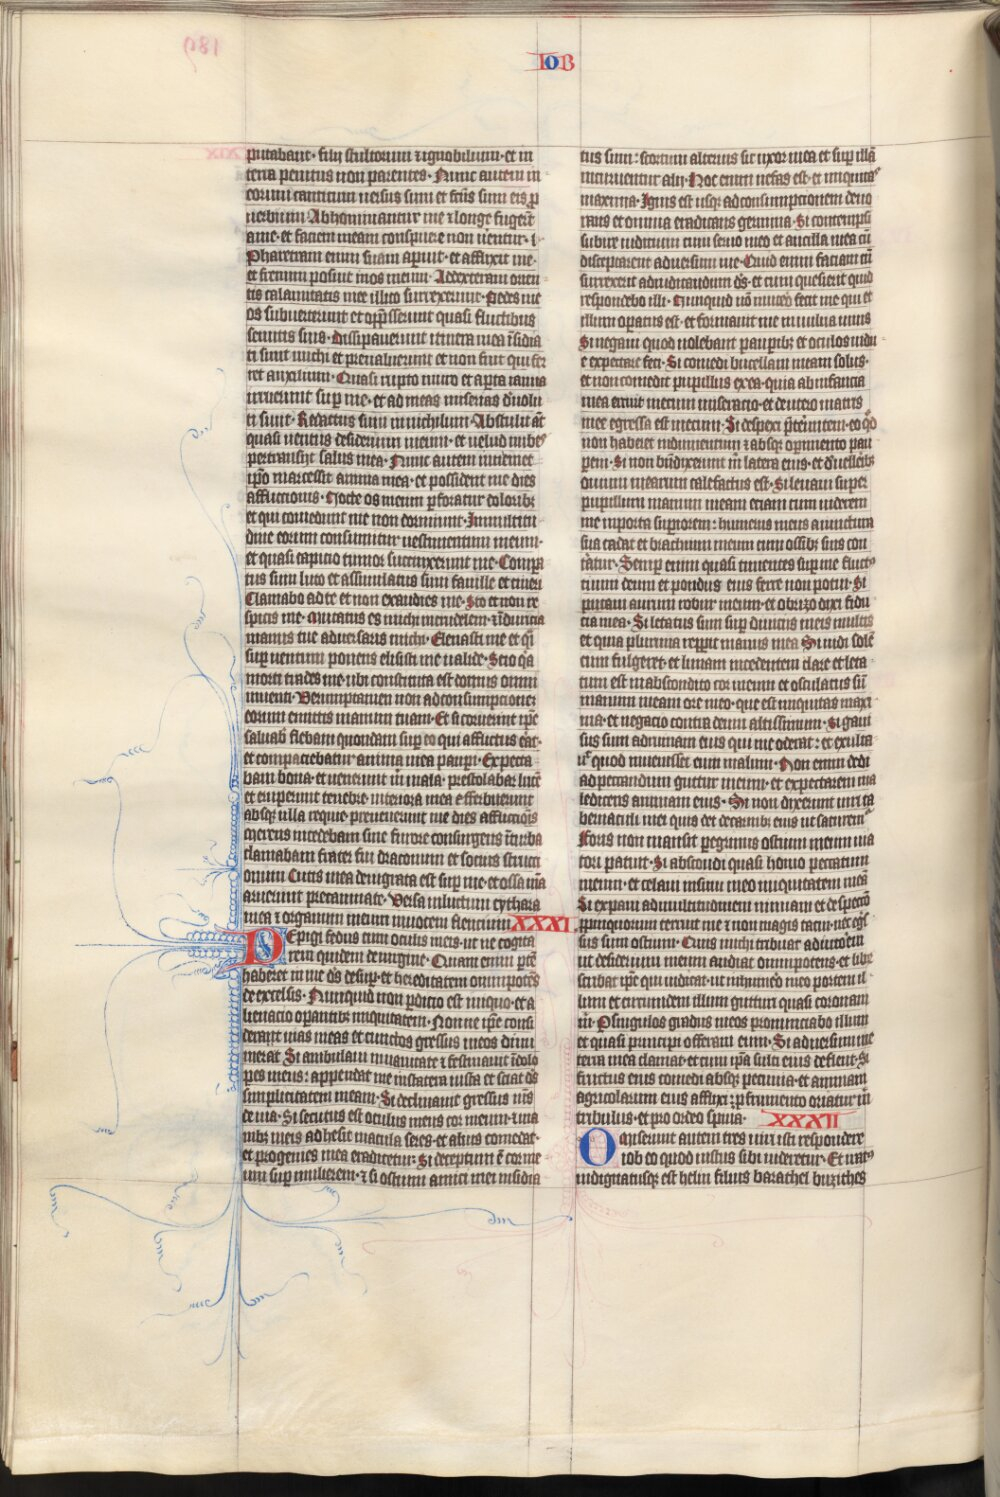 IOB
putabant. filii stultorum ⁊ ignobilium. et in
terra penitus non parentes. Nunc autem in
eorum canticum uersus sum et fc̄us sum eis ꝓ
uerbium. Abhominantur me ⁊ longe fugiūt
a me. et faciem meam conspuere non uerentur.
Pharetram enim suam aperuit. et afflixit me.
et frenum posuit in os meum. Ad dexteram orien
tis calamitatis mee illico surrexerunt. Pedes me
os subuerterunt et opp̄sserunt quasi fluctibus
semitis suis. Dissipauerunt itinera mea īsidia
ti sunt michi et preualuerunt et non fuit qui fer
ret auxilium. Quasi rupto muro et aperta ianua
irruerunt suꝑ me. et ad meas miserias d̄uolu
ti sunt. Redactus sum in nichilum. Abstulit āt
quasi uentus desiderium meum. et uelud nubes
pertransiit salus mea. Nunc autem in memet
ip̄o marcessit anima mea. et possident me dies
afflictionis. Nocte os meum ꝑforatur doloribꝫ
et qui comedunt me non dormiunt. In multitu
dine eorum consumitur uestimentum meum.
et quasi capitio tunice succinxerunt me. Compa
tus sum luto et assimilatus sum fauille et cineri
Clamabo ad te et non exaudies me. Sto et non re
spicis me. Mutatus es michi in crudelem. ⁊ ī duricia
manus tue aduersaris michi. Eleuasti me et q̄i
suꝑ uentum ponens elisisti me ualide. Scio q̄a
morti trades me. ubi constituta est domus omni
uiuenti. Verumptamen non ad consumpcionem
eorum emittis manum tuam. Et si corruerint ip̄e
saluab. flebam quondam suꝑ eo qui afflictus erat.
et compatiebatur anima mea pauperi. Expecta
bam bona. et uenerunt m̄ mala. prestolabar lucē
et eruperunt tenebre. interiora mea efferbuerunt
absqꝫ ulla requie. preuenerunt me dies afflictiōis
Merens incedebam sine furore consurgens ī turba
clamabam. frater fui draconum et socius structi
onum. Cutis mea denigrata est suꝑ me. et ossa m̄a
aruerunt pre caumate. Versa in luctum cythara
mea ⁊ organum meum in uocem flencium. XXXI
Pepigi fedus cum oculis meis. ut ne cogita
rem quidem de uirgine. Quam enim ꝑtē
haberet in me d̄s desuꝑ. et hereditatem omnipotēs
de excelsis. Nunquid non ꝑditio est iniquo. et a
lienacio oꝑantibꝫ iniquitatem. Nonne ip̄e consi
derat uias meas et cunctos gressus meos dinu
merat. Si ambulaui in uanitate ⁊ festinauit ī dolo
pes meus: appendat me in statera iusta et sciat d̄s
simplicitatem meam. Si declinauit gressus m̄s
de uia. Si secutus est oculus meus cor meum. ⁊ in ma
nibꝫ meis adhesit macula. seres. et alius comedat.
et progenies mea eradicetur. Si deceptum ē cor me
um suꝑ mulierem. ⁊ si ostium amici mei insidia
tus sum: scortum alterius sit uxor mea et suꝑ illā
incuruentur alii. Hoc enim nefas est. et iniquitas
maxima. Ignis est usqꝫ ad consumpcionem deuo
rans et omnia eradicans genimina. Si contempsi
subire iudicium cum seruo meo et ancilla mea cū
disceptarent aduersum me. Quid enim faciam cū
surrexerit ad iudicandum d̄s. et cum quesierit quid
respondebo illi. Nunquid nō in utero fecit me qui et
illum operatus est. et formauit me in uulua unus
Si negaui quod uolebant pauperibꝫ et oculos uidu
e expectare feci. Si comedi bucellam meam solus.
et non comedit pupillus ex ea. quia ab infancia
mea creuit mecum miseracio. et de utero matris
mee egressa est mecum. Si despexi p̄tereuntem. eo qđ
non haberet indumentum ⁊ absqꝫ operimento pau
perem. Si non b̄ndixerunt m̄ latera eius. et de uelleribꝫ
ouium mearum calefactus est. Si leuaui super
pupillum manum meam etiam cum uiderem
me in porta suꝑiorem: humerus meus a iunctura
sua cadat et brachium meum cum ossibꝫ suis con
fringatur. Semꝑ enim quasi tumentes suꝑ me fluctus
timui deum et pondus eius ferre non potui. Si
putaui aurum robur meum. et obrizo dixi fidu
cia mea. Si letatus sum suꝑ diuitiis meis multis
et quia plurima repperit manus mea. Si uidi solē
cum fulgeret. et lunam incedentem clare. et leta
tum est in abscondito cor meum et osculatus sū
manum meam ore meo. que est iniquitas maxi
ma. et negacio contra deum altissimum. Si gaui
sus sum ad ruinam eius qui me oderat: et exulta
ui quod inuenisset eum malum. Non enim dedi
ad peccandum guttur meum. et expectarem ma
ledicens animam eius. Si non dixerunt uiri ta
bernaculi mei quis det de carnibꝫ eius ut saturemur
Foris non mansit peregrinus ostium meum uia
tori patuit. Si abscondi quasi homo peccatum
meum. et celaui in sinu meo iniquitatem meā
Si expaui ad multitudinem nimiam et despectō
ꝓpinquorum terruit me ⁊ non magis tacui. nec eḡs
sus sum ostium. Quis michi tribuat adiutorem
ut desiderium meum audiat omnipotens. et libr
scribat ip̄e qui iudicat. ut in humero meo portem il
lum et circumdem illum guttur quasi coronam
m̄. Per singulos gradus meos pronunciabo illum
et quasi principi offeram eum. Si aduersum me
terra mea clamat. et cum ip̄a sulci eius deflent. Si
fructus eius comedi absqꝫ pecunia. et animam
agricolarum eius afflixi: ꝓ frumento oriatur m̄
tribulus. et pro ordeo spina. XXXII
Omiserunt autem tres uiri isti respondere
iob eo quod iustus sibi uideretur. Et iratus
indignatusqꝫ est heliu filius barachel buzithes